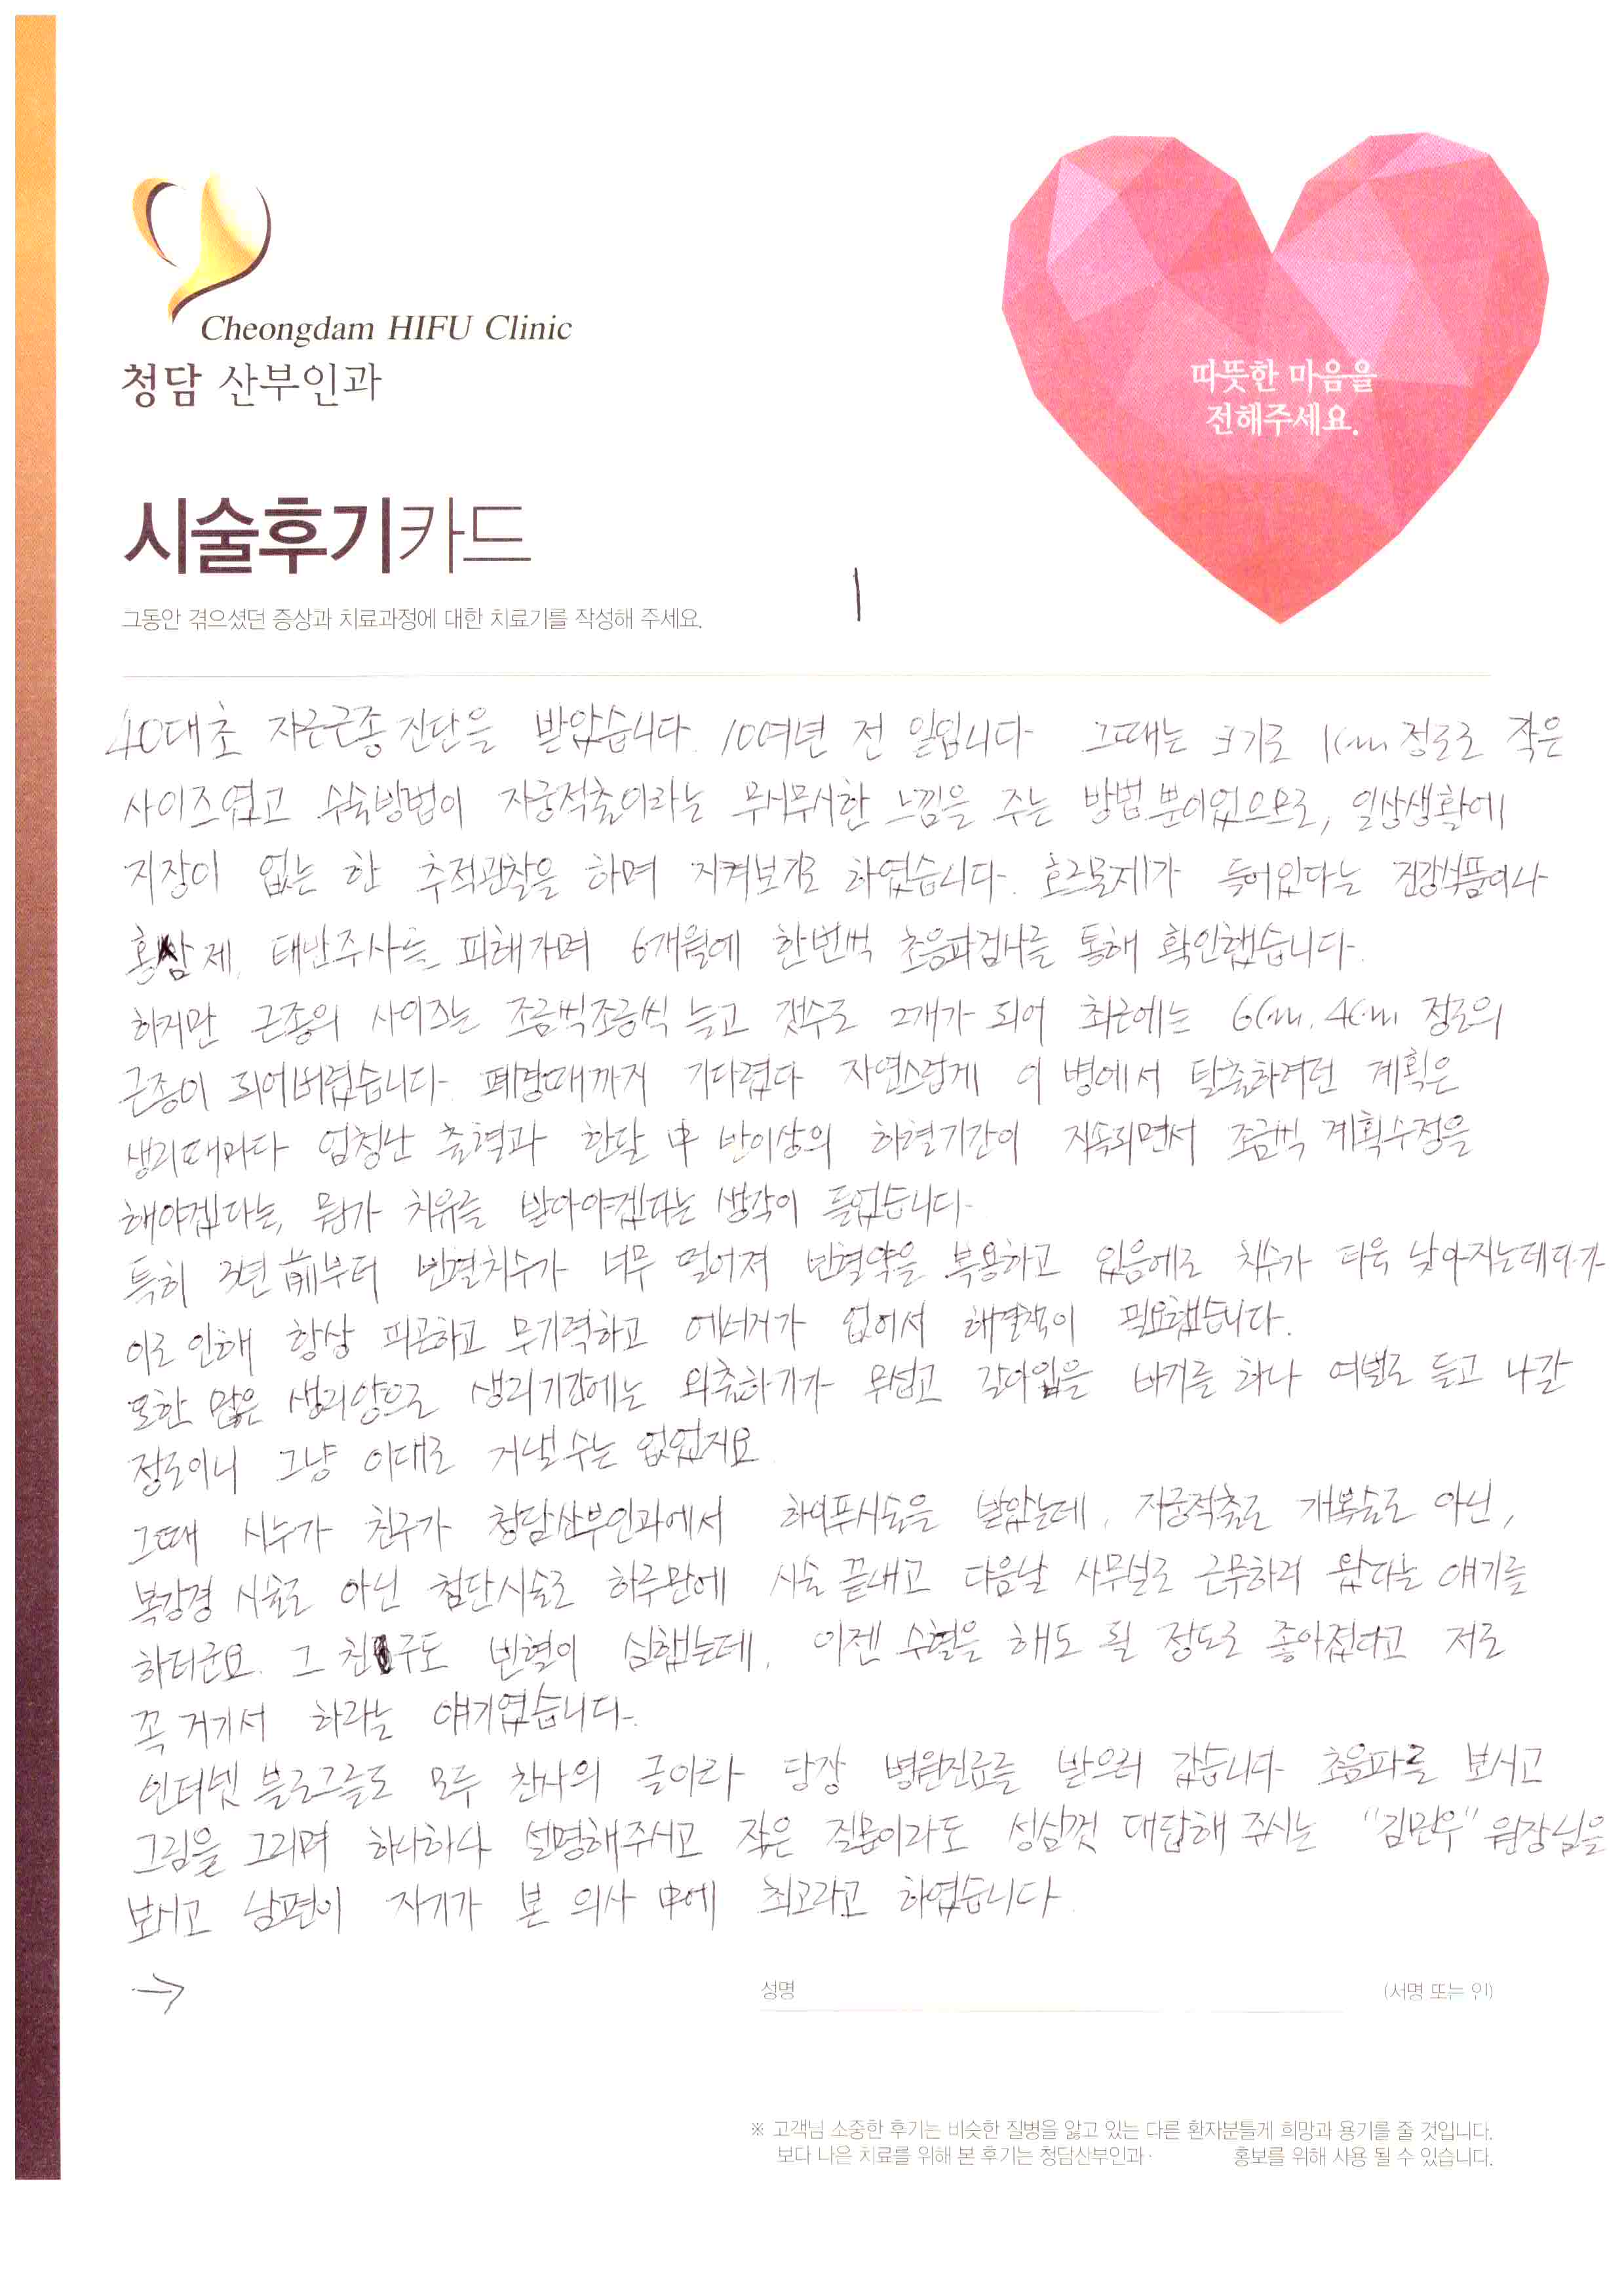 Cheongdam HIFU Clinic
청담 산부인과
따뜻한 마음을
전해주세요.
시술후기카드
1
그동안 겪으셨던 증상과 치료과정에 대한 치료기를 작성해 주세요.
40대초 자궁근종 진단을 받았습니다. 10여년 전 일입니다. 그때는 크기도 1cm 정도로 작은
사이즈였고 수술방법이 자궁적출이라는 무시무시한 느낌을 주는 방법뿐이었으므로, 일상생활에
지장이 없는 한 추적관찰을 하며 지켜보기로 하였습니다. 호르몬제가 들어있다는 건강식품이나
홍삼제, 태반주사는 피해가며 6개월에 한번씩 초음파검사를 통해 확인했습니다.
하지만 근종의 사이즈는 조금씩조금씩 늘고 갯수도 2개가 되어 최근에는 6cm, 4cm 정도의
근종이 되어버렸습니다. 폐경때까지 기다렸다 자연스럽게 이 병에서 탈출하려던 계획은
생리때마다 엄청난 출혈과 한달 中 반이상의 하혈기간이 지속되면서 조금씩 계획수정을
해야겠다는, 뭔가 치유를 받아야겠다는 생각이 들었습니다.
특히 3년 前부터 빈혈치수가 너무 떨어져 빈혈약을 복용하고 있음에도 치수가 더욱 낮아지는데다가
이로 인해 항상 피곤하고 무기력하고 에너지가 없어서 해결책이 필요했습니다.
또한 많은 생리양으로 생리기간에는 외출하기가 무섭고 갈아입을 바지를 하나 여벌로 들고 나갈
정도이니 그냥 이대로 지낼 수는 없었지요.
그때 시누가 친구가 청담산부인과에서 하이푸시술을 받았는데, 자궁적출도 개복술도 아닌,
복강경 시술도 아닌 첨단시술로 하루만에 시술 끝내고 다음날 사무실로 근무하러 왔다는 얘기를
하더군요. 그 친구도 빈혈이 심했는데, 이젠 수혈을 해도 될 정도로 좋아졌다고 저도
꼭 거기서 하라는 얘기였습니다.
인터넷 블로그글도 모두 찬사의 글이라 당장 병원진료를 받으러 갔습니다. 초음파를 보시고
그림을 그리며 하나하나 설명해주시고 작은 질문이라도 성실껏 대답해 주시는 "김민우" 원장님을
보시고 남편이 자기가 본 의사 中에 최고라고 하였습니다.
→
성명 (서명 또는 인)
※ 고객님 소중한 후기는 비슷한 질병을 앓고 있는 다른 환자분들게 희망과 용기를 줄 것입니다.
보다 나은 치료를 위해 본 후기는 청담산부인과· 홍보를 위해 사용 될 수 있습니다.